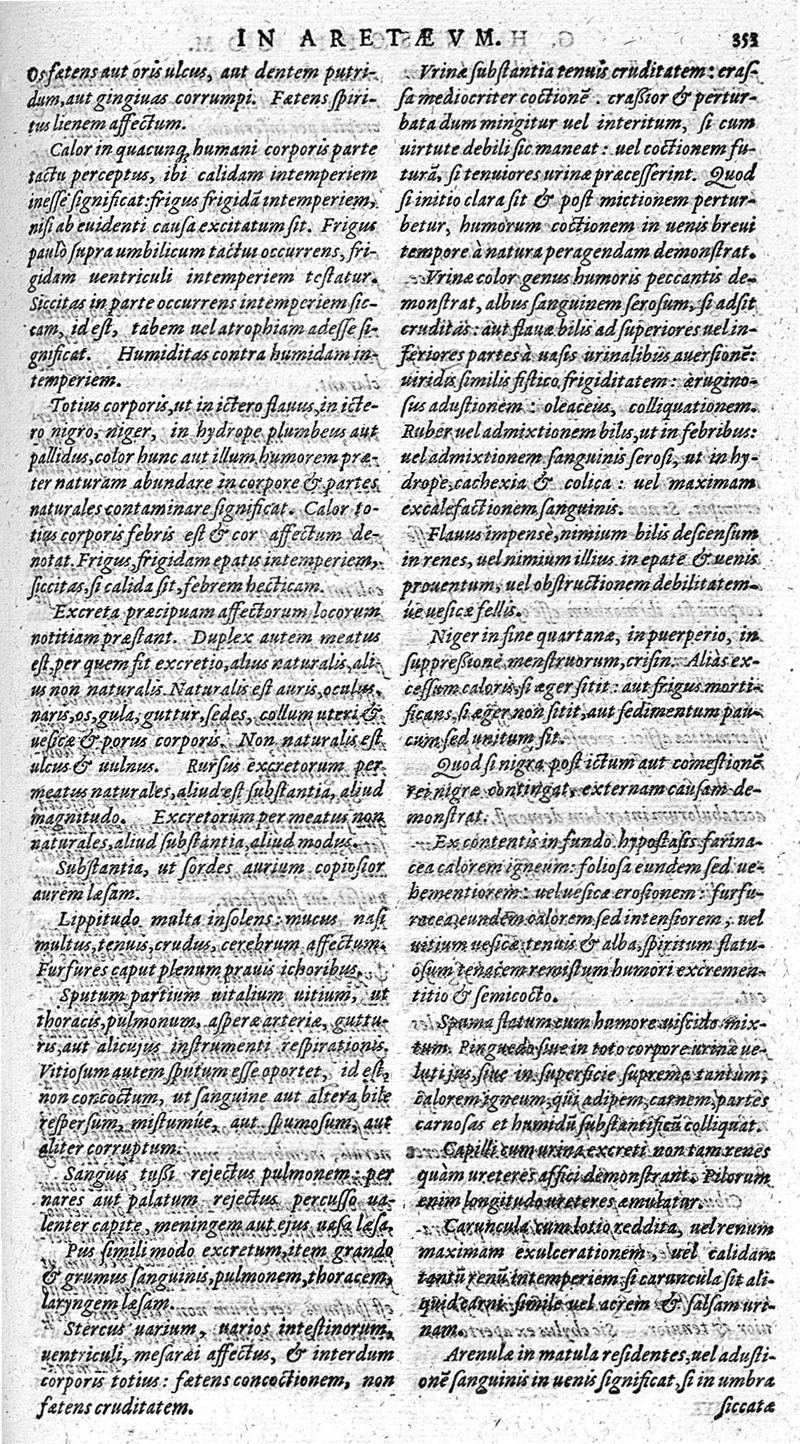 IN ARETÆVM. 353
Os fœtens aut oris ulcus, aut dentem putri-
dum, aut gingiuas corrumpi. Fœtens spiri-
tus lienem affectum.
Calor in quacunq; humani corporis parte
tactu perceptus, ibi calidam intemperiem
inesse significat: frigus frigidā intemperiem,
nisi ab euidenti causa excitatum sit. Frigus
paulò supra umbilicum tactui occurrens, fri-
gidam uentriculi intemperiem testatur.
Siccitas in parte occurrens intemperiem sic-
cam, id est, tabem uel atrophiam adesse si-
gnificat. Humiditas contra humidam in-
temperiem.
Totius corporis, ut in ictero flauus, in icte-
ro nigro, niger, in hydrope plumbeus aut
pallidus, color hunc aut illum humorem præ-
ter naturam abundare in corpore & partes
naturales contaminare significat. Calor to-
tius corporis febris est & cor affectum de-
notat. Frigus, frigidam epatis intemperiem,
siccitas, si calida sit, febrem hecticam.
Excreta præcipuam affectorum locorum
notitiam præstant. Duplex autem meatus
est, per quem fit excretio, alius naturalis, ali-
us non naturalis. Naturalis est auris, oculus,
naris, os, gula, guttur, sedes, collum uteri &
uesicæ & porus corporis. Non naturalis est
ulcus & uulnus. Rursus excretorum per
meatus naturales, aliud est substantia, aliud
magnitudo. Excretorum per meatus non
naturales, aliud substantia, aliud modus.
Substantia, ut sordes aurium copiosior
aurem læsam.
Lippitudo multa insolens: mucus nasi
multus, tenuis, crudus, cerebrum affectum.
Furfures caput plenum prauis ichoribus.
Sputum partium uitalium uitium, ut
thoracis, pulmonum, asperæ arteriæ, guttu-
ris, aut alicujus instrumenti respirationis.
Vitiosum autem sputum esse oportet, id est,
non concoctum, ut sanguine aut altera bile
respersum, mistumúe, aut spumosum, aut
aliter corruptum.
Sanguis tußi rejectus pulmonem: per
nares aut palatum rejectus percusso ua-
lenter capite, meningem aut ejus uasa læsa.
Pus simili modo excretum, item grando
& grumus sanguinis, pulmonem, thoracem,
laryngem læsam.
Stercus uarium, uarios intestinorum,
uentriculi, mesaræi affectus, & interdum
corporis totius: fœtens concoctionem, non
fœtens cruditatem.
Vrinæ substantia tenuis cruditatem: cras-
sa mediocriter coctionē. craßior & pertur-
bata dum mingitur uel interitum, si cum
uirtute debili sic maneat: uel coctionem fu-
turā, si tenuiores urinæ præcesserint. Quod
si initio clara sit & post mictionem pertur-
betur, humorum coctionem in uenis breui
tempore à natura peragendam demonstrat.
Vrinæ color genus humoris peccantis de-
monstrat, albus sanguinem serosum, si adsit
cruditas: aut flauæ bilis ad superiores uel in-
feriores partes à uasis urinalibus auersionē:
uiridis similis fistico, frigiditatem: ærugino-
sus adustionem: oleaceus, colliquationem.
Ruber uel admixtionem bilis, ut in febribus:
uel admixtionem sanguinis serosi, ut in hy-
drope, cachexia & colica: uel maximam
excalefactionem sanguinis.
Flauus impensè, nimium bilis descensum
in renes, uel nimium illius in epate & uenis
prouentum, uel obstructionem debilitatem-
úe uesicæ fellis.
Niger in fine quartanæ, in puerperio, in
suppreßione menstruorum, crisin. Aliàs ex-
cessum caloris, si æger sitit: aut frigus morti-
ficans, si æger non sitit, aut sedimentum pau-
cum sed unitum sit.
Quod si nigra post ictum aut comestionē
rei nigræ contingat, externam causam de-
monstrat.
Ex contentis in fundo hypostasis farina-
cea calorem igneum: foliosa eundem sed ue-
hementiorem: uel uesicæ erosionem: furfu-
racea, eundem calorem sed intensiorem, uel
uitium uesicæ tenuis & alba, spiritum flatu-
osum tenacem remistum humori excremen-
titio & semicocto.
Spuma flatum cum humore uiscido mix-
tum. Pinguedo siue in toto corpore urinæ ue-
luti jus, siue in superficie suprema tantum,
calorem igneum, qui adipem, carnem, partes
carnosas et humidū substantificū colliquat.
Capilli cum urina excreti non tam renes
quàm ureteres affici demonstrant. Pilorum
enim longitudo ureteres æmulatur.
Caruncula cum lotio reddita, uel renum
maximam exulcerationem, uel calidam
tantū renū intemperiem, si caruncula sit ali-
quid carni simile uel acrem & salsam uri-
nam.
Arenulæ in matula residentes, uel adusti-
onē sanguinis in uenis significat, si in umbra
siccatæ